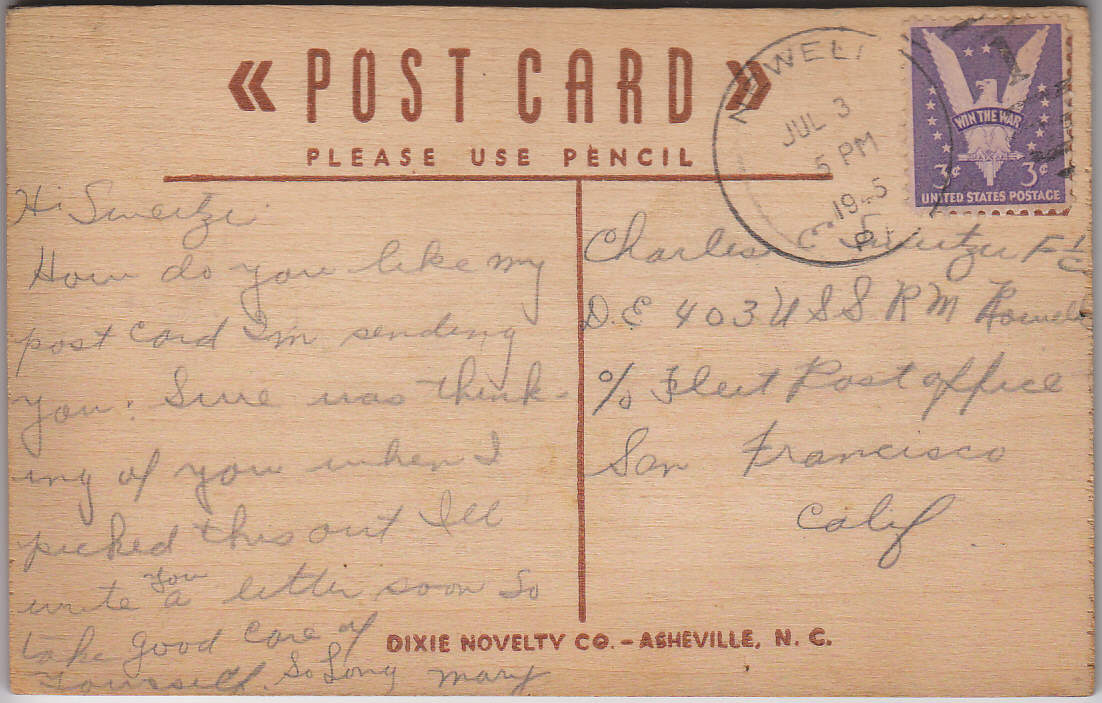 « POST CARD »
PLEASE USE PENCIL
JUL 3
5 PM
WIN THE WAR
3¢ 3¢
UNITED STATES POSTAGE
Hi Swertzi
How do you like my
post card Im sending
you: Sure was think-
ing of you when I
picked this out Ill
write you a letter soon So
take good care of
yourself. So Long Mary
Charles E Swertzer F 1/c
D.E 403 U S S R M Rowell
c/o Fleet Post office
San Francisco
Calif
DIXIE NOVELTY CO. - ASHEVILLE, N. C.